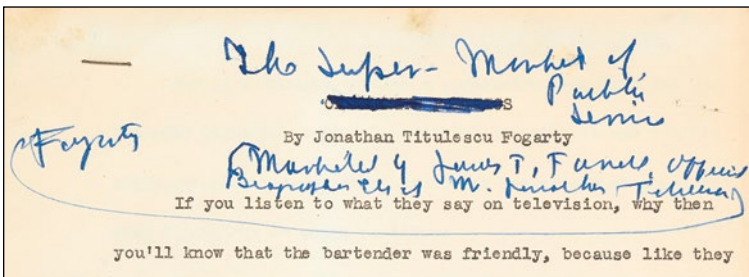 The Super-Market of
Public
By Jonathan Titulescu Fogarty
Fogarty
(Marketed by James T. Farrell, Official
Biographer etc of Mr. Jonathan Titulescu
If you listen to what they say on television, why then
you'll know that the bartender was friendly, because like they